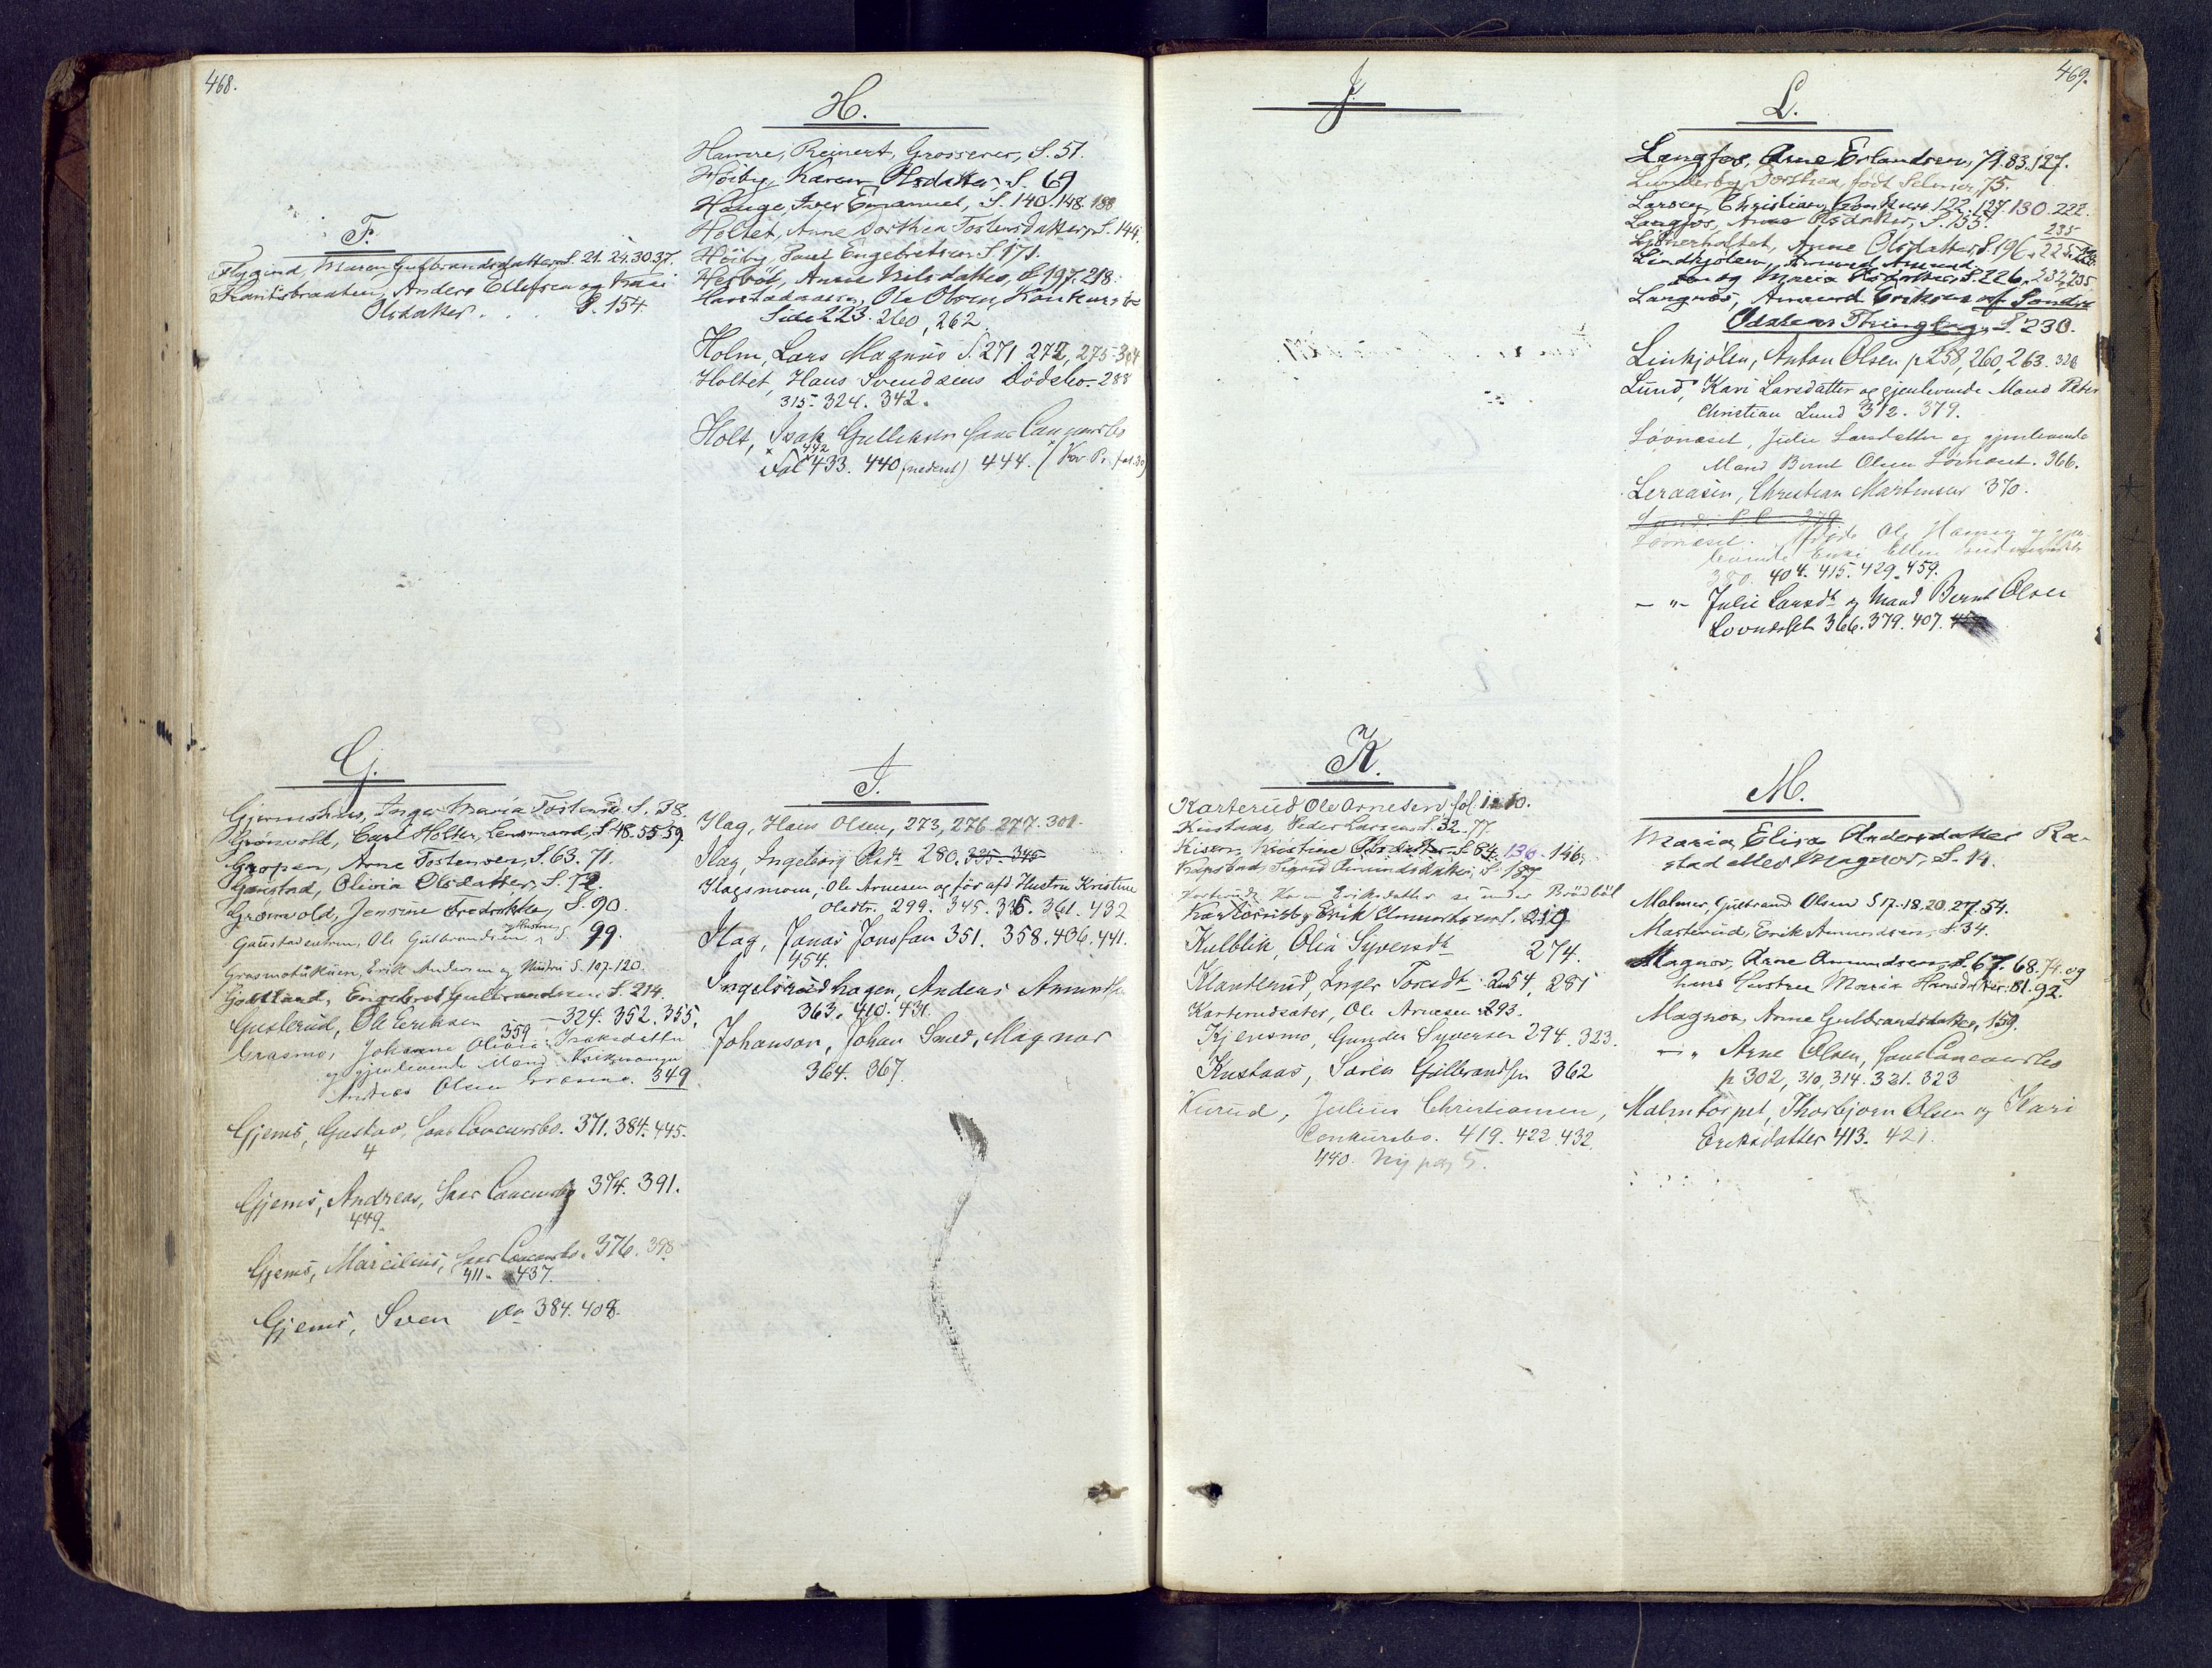 468.
F.
Flygind, Maren Gulbrandsdatter, S. 21. 24. 30. 37.
Anders Ellefsen og Kari
Olsdatter . . . S. 154.
G.
Inger Maria S. 38.
Grönvold, Carl Holter, Lensmand, S. 48. 55. 59.
Gropen, Arne Tostensen, S. 63. 71.
Olivia Olsdatter, S. 72.
Grönvold, Jensine S. 90.
Gaustadeutrem, Ole Gulbrandsen og Hustru S 99.
Erik Andersen og Hustru S. 107-120.
Engebret Gulbrandsen S. 214.
Gusterud, Ole Eriksen - 324. 352. 355.
359
Grasmo, Johanne Olivia Isaksdatter
og gjenlevende Mand
Andreas Olsen Grasmo. 349
Gjems, Gustav, Concursbo. 371. 384. 445.
4
Gjems, Andreas, Concursbo 374. 391.
449.
Gjems, Marcilius, Concursbo. 376. 398
411. 437.
Gjems, Sven 384. 408.
H.
Hamre, Reinert, Grosserer, S. 51.
Höiby, Karen Olsdatter, S. 69
Hauge, Iver Emanuel, S. 140. 148. 188
Holtet, Anne Dorthea Tostensdatter, S. 144.
Höiby, Paul Engebretsen S. 171.
Anne Nilsdatter, S. 197. 218.
Ole Olsen, Konkursbo
Side 223. 260, 262.
Holm, Lars Magnus S. 271 272, 275-304
Holtet, Hans Svendsens Dödsbo - 288
315. 324. 342.
Holt, Isak Gulliksen Concursbo
442
fol 433. 440 (nederst) 444.
I.
Ilag, Hans Olsen, 273, 276-277. 301.
Ilag, Ingeborg Olsdtr 280. 335-345
Ilagsmoen, Ole Arnesen og før afd Hustru Kristine
Olsdtr. 299. 345. 335. 361. 432
Ilag, Jonas Jonssen 351. 358. 436. 441.
454.
Ingelsrudhagen, Anders Amundsen
363. 410. 431.
Johanson, Johan Magnor
364. 367.
469.
J.
K.
Karterud Ole Arnesen fol. 1. 10.
Knstaas, Peder Larsen S. 32. 77.
Kristine Olsdatter S. 84. 136. 146.
Sigrid Amundsdatter, S. 187
Eriksdatter se under Brödböl
Erik S. 219
Kulblik, Olia Syversdtr 274.
Klanterud, Inger Toresdtr 254, 281
Karterudsæter, Ole Arnesen 293.
Kjensmo, Gunder Syversen 294. 323.
Knstaas, Søren Gulbrandsen 362
Kurud, Julius Christiansen,
Conkursbo. 419. 422. 432.
440. Ny pag 5.
L.
Langfos, Arne Erlandsen, 71. 83. 127.
Lunderby, Dorthea, født Selmer, 75.
Larsen, Christian, Konkurs 122. 127. 130. 222.
Langfos, Anne Olsdatter, S. 155.
235
Anne Olsdatter S. 196. 225.
Lindkjølen, Amund
sen og Maria Olsdatter, S. 226. 232. 235.
Langnæs, Amund Eriksen af Söndre
Odalens Thinglag, S. 230.
Linkjølen, Anton Olsen p 258, 260, 263. 328
Lund, Kari Larsdatter og gjenlevende Mand Peter
Christian Lund 312. 379.
Løvnæset, Julie Larsdatter og gjenlevende
Mand Bernt Olsen Lövnæset. 366.
Leraasen, Christian Martinsen 370.
Lund. P.C. 379
Løvnæset. Ole Hansen og gjen-
levende Enke Ellen
380. 404. 415. 429. 459.
— " — Julie Larsdtr og Mand Bernt Olsen
366. 379. 407.
M.
Maria Elisa Andersdatter Ra-
stad eller Magnor, S. 14.
Malmer, Gulbrand Olsen S 17. 18, 20, 27. 54.
Masterud, Erik Amundsen, S. 34.
Magnor, Arne Amundsen, S. 67. 68. 74. og
hans Hustru Maria Hansdatter. 81. 92.
Magnor, Anne Gulbrandsdatter, 159.
— " Arne Olsen, Concursbo
p 302, 310, 314. 321. 323
Malmtorpet, Thorbjørn Olsen og Kari
Eriksdatter 413. 421.